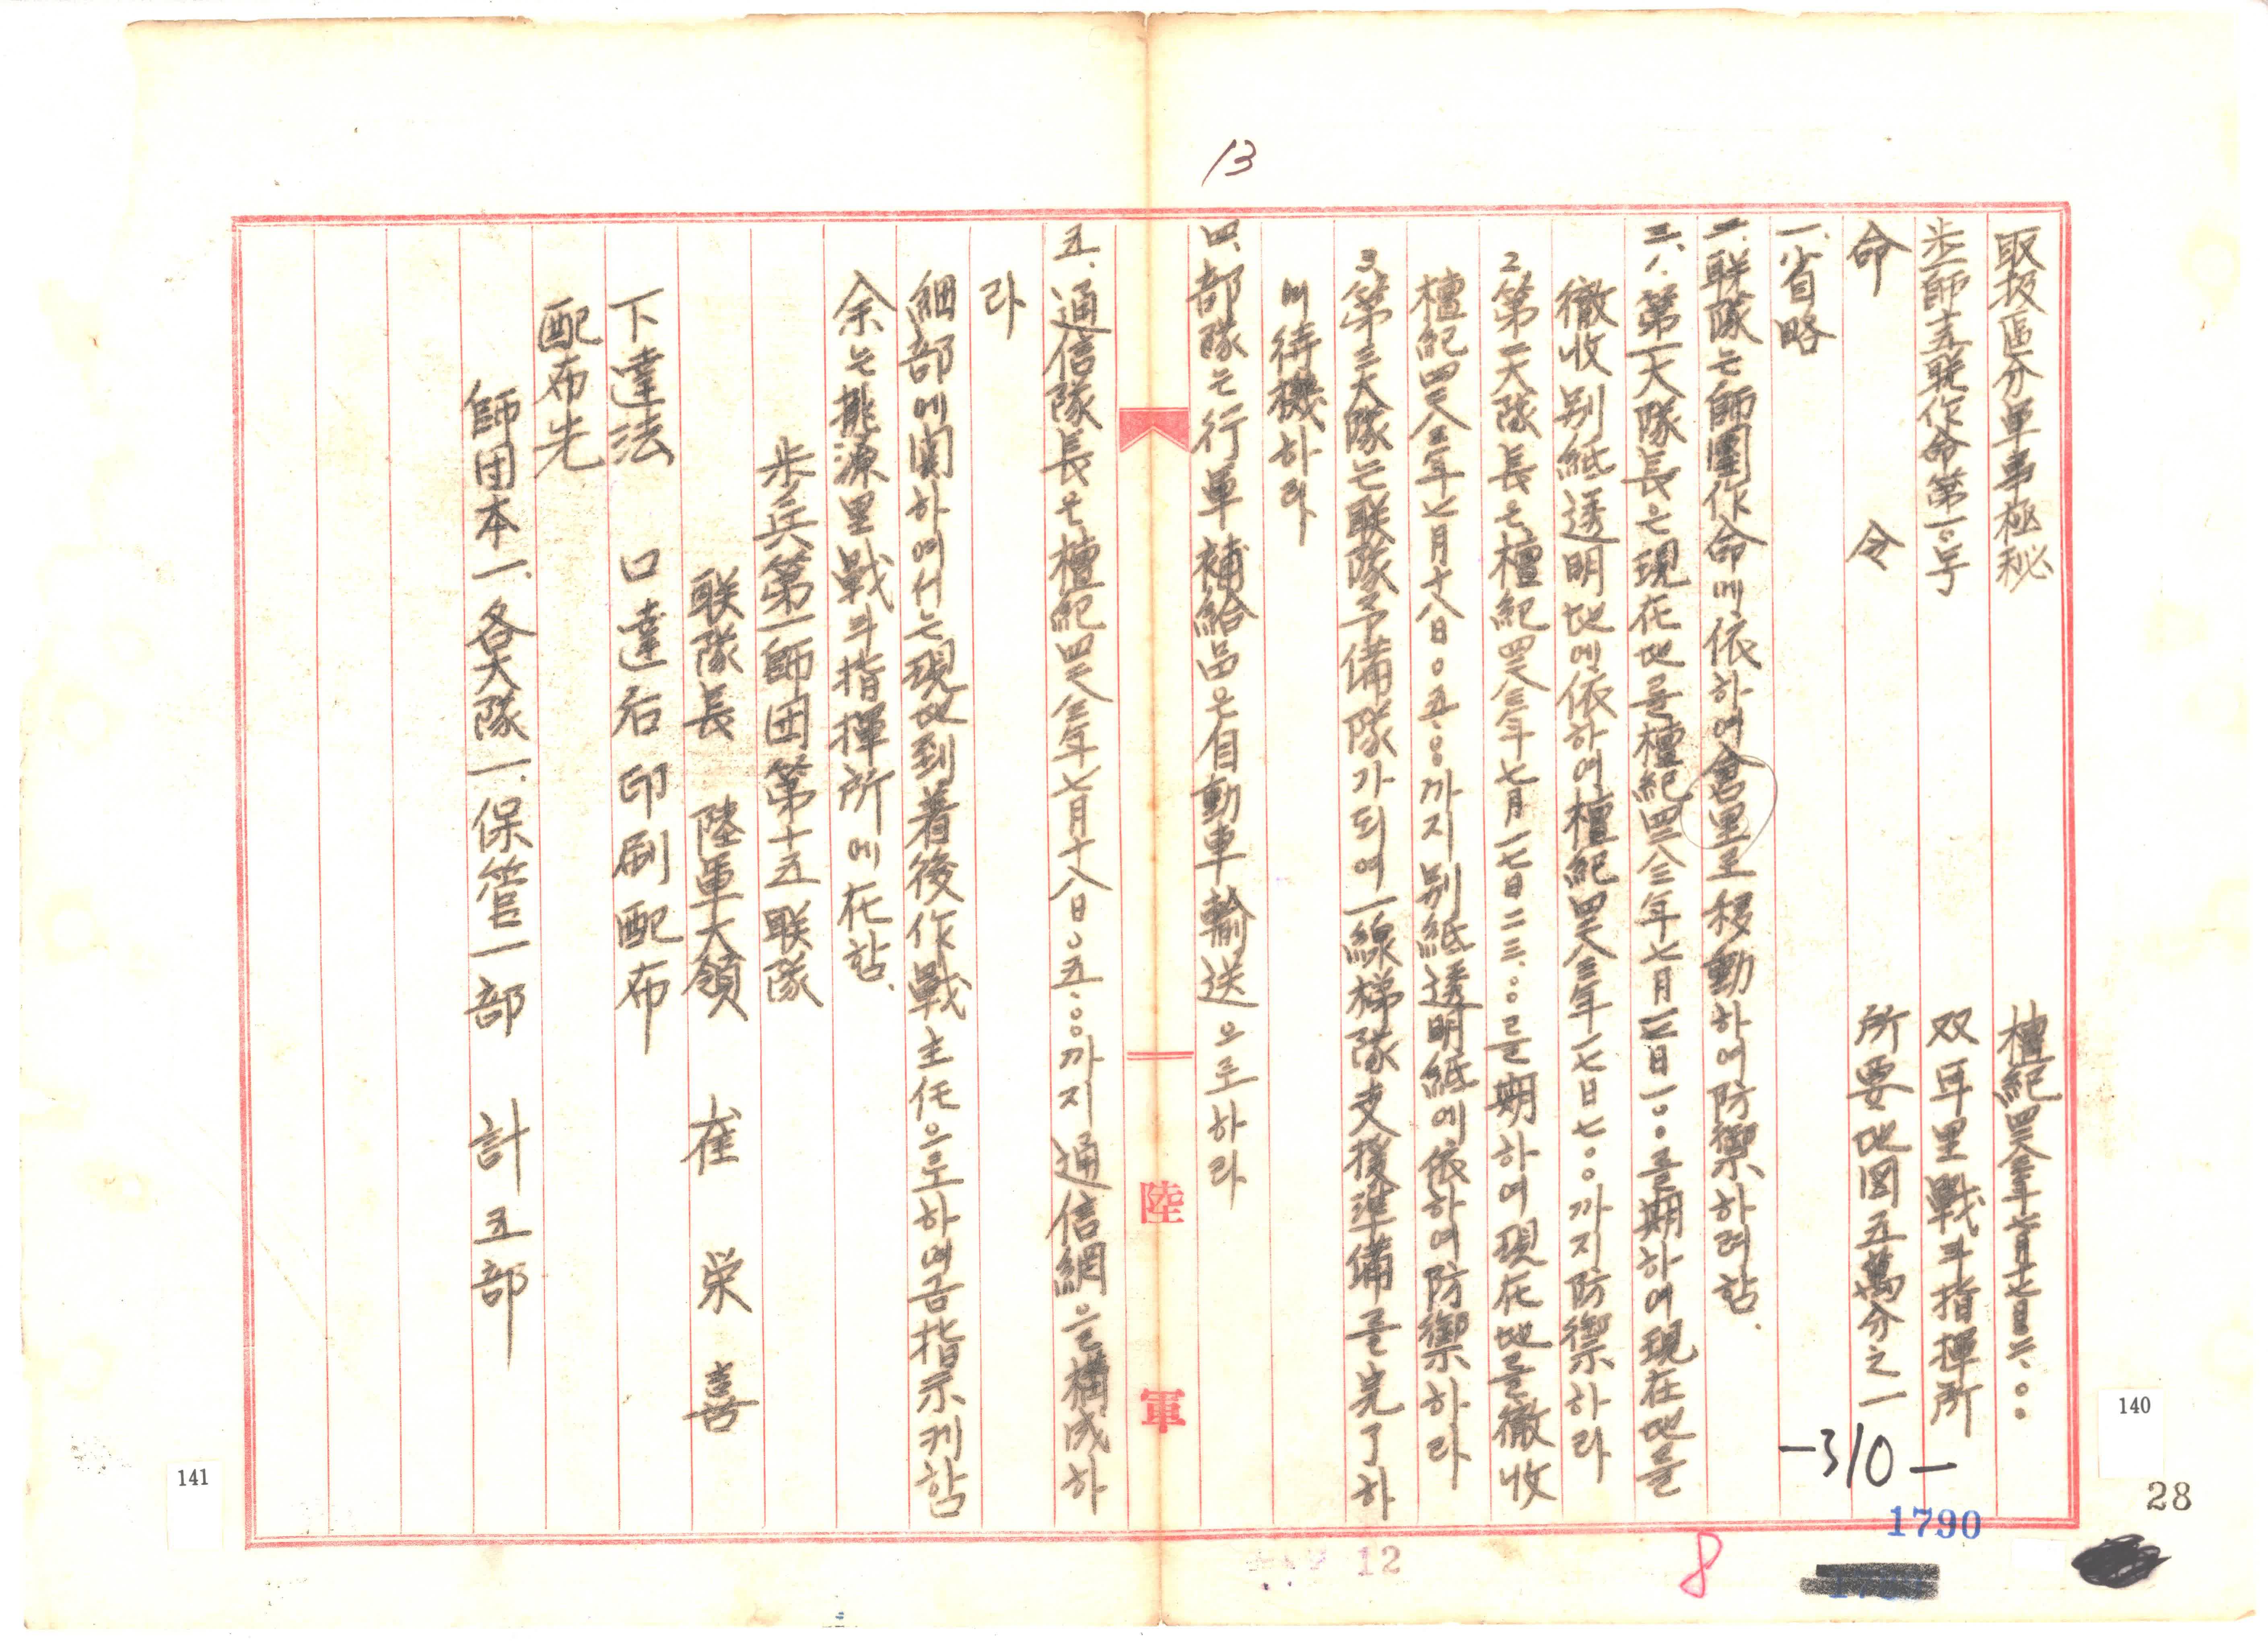 13
取扱區分軍事極秘
檀紀四二八三年七月十七日二二・〇〇
步一師十五聯作命第一〇号
双耳里戰斗指揮所
命 令
所要地図五萬分之一
一.省略
二.联隊는師團作命에依하여倉里로移動하여防禦하려함.
三.1.第一大隊長은現在地를檀紀四二八三年七月一七日一〇・〇〇를期하여現在地를
徹收別紙透明地에依하여檀紀四二八三年七月一七日七・〇〇까지防禦하라
2.第二大隊長은檀紀四二八三年七月一七日二三.〇〇를期하여現在地를徹收
檀紀四二八三年七月十八日〇五.〇〇까지別紙透明紙에依하여防禦하라
3.第三大隊는联隊予備隊가되여一線梯隊支援準備를完了하
여待機하라
四.部隊는行軍補給品은自動車輸送으로하라
五.通信隊長은檀紀四二八三年七月十八日〇五.〇〇까지通信網을構成하
라
細部에関하여서는現地到着後作戰主任으로하여금指示케함
余는桃源里戰斗指揮所에在함.
步兵第一師団第十五联隊
联隊長 陸軍大領 崔 栄 喜
下達法 口達后印刷配布
配布先
師団本一.各大隊一.保管一部 計五部
陸 軍
-310-
140
28
1790
8
12
141